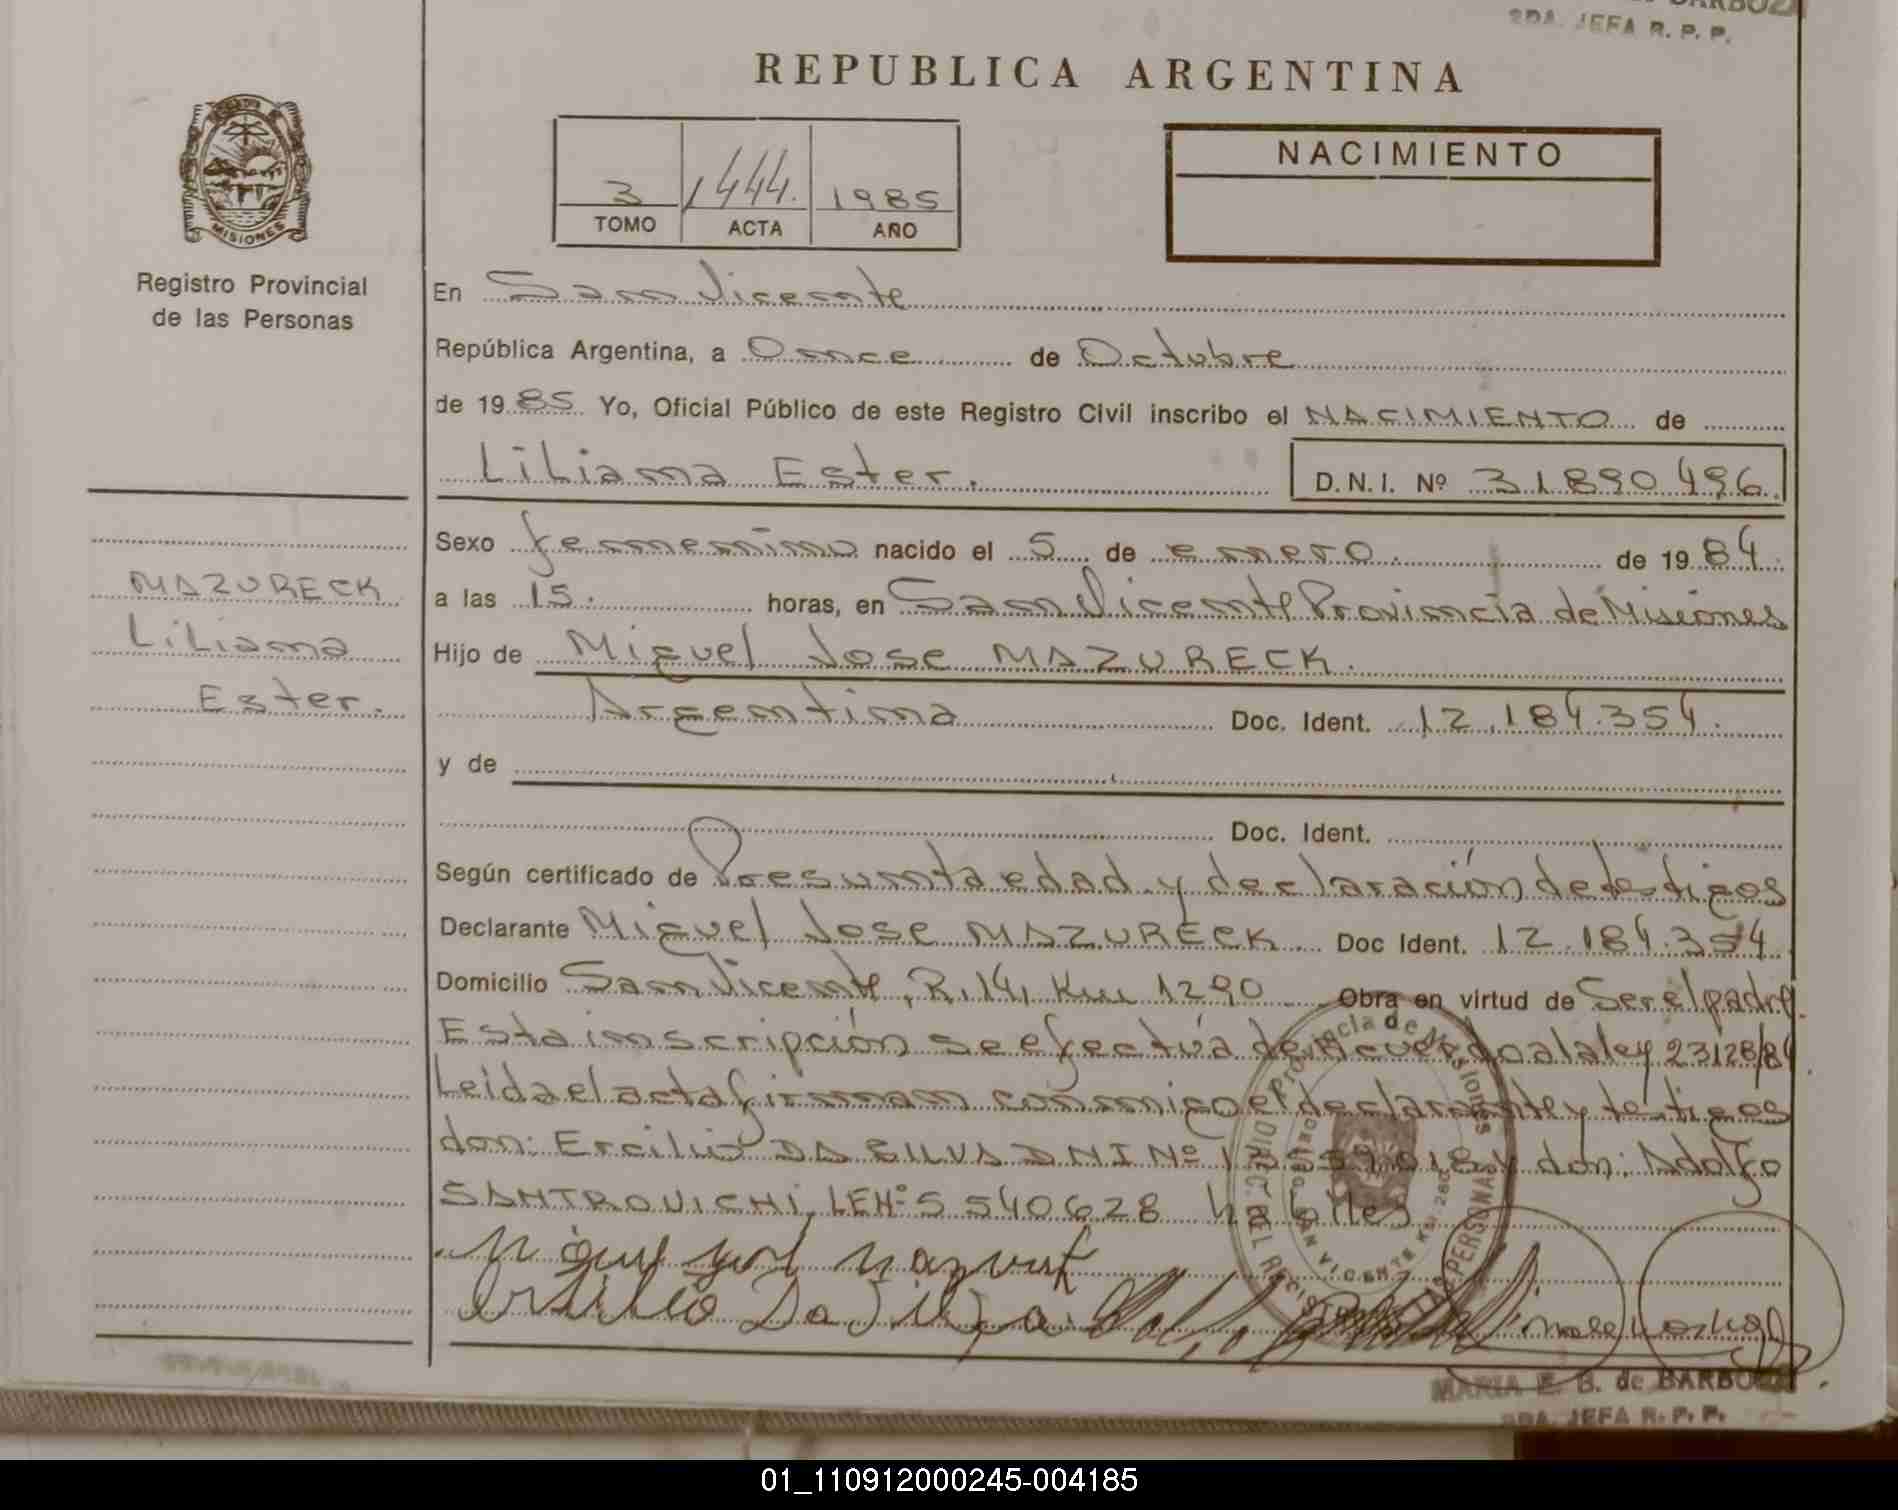 BARBOZA
SDA. JEFA R. P. P.
REPUBLICA ARGENTINA
NACIMIENTO
3 1444. 1985
TOMO ACTA AÑO
MISIONES
Registro Provincial
de las Personas
En San Vicente
República Argentina, a Once de Octubre
de 1985 Yo, Oficial Público de este Registro Civil inscribo el NACIMIENTO de
Liliana Ester. D.N.I. Nº 31890496.
Sexo femenino nacido el 5 de enero de 1984.
MAZURECK
Liliana
Ester.
a las 15. horas, en San Vicente Provincia de Misiones
Hijo de Miguel Jose MAZURECK.
Argentina Doc. Ident. 12.184.354.
y de
Doc. Ident.
Según certificado de Presunta edad y declaración de testigos
Declarante Miguel Jose MAZURECK Doc Ident. 12.184.354
Domicilio San Vicente, R. 14, Km 1290 Obra en virtud de Ser el padre.
Esta inscripción se efectúa de Acuerdo a la ley 23128/84.
Leida el acta firman conmigo el declarante y testigos
don: Ercilio DA SILVA DNI Nº y don: Adolfo
SANTROVICHI, LE Nº 5 540628 habiles
Ersilio Da Silva
MARIA E. B. de BARBOZA
SDA. JEFA R. P. P.
01_110912000245-004185